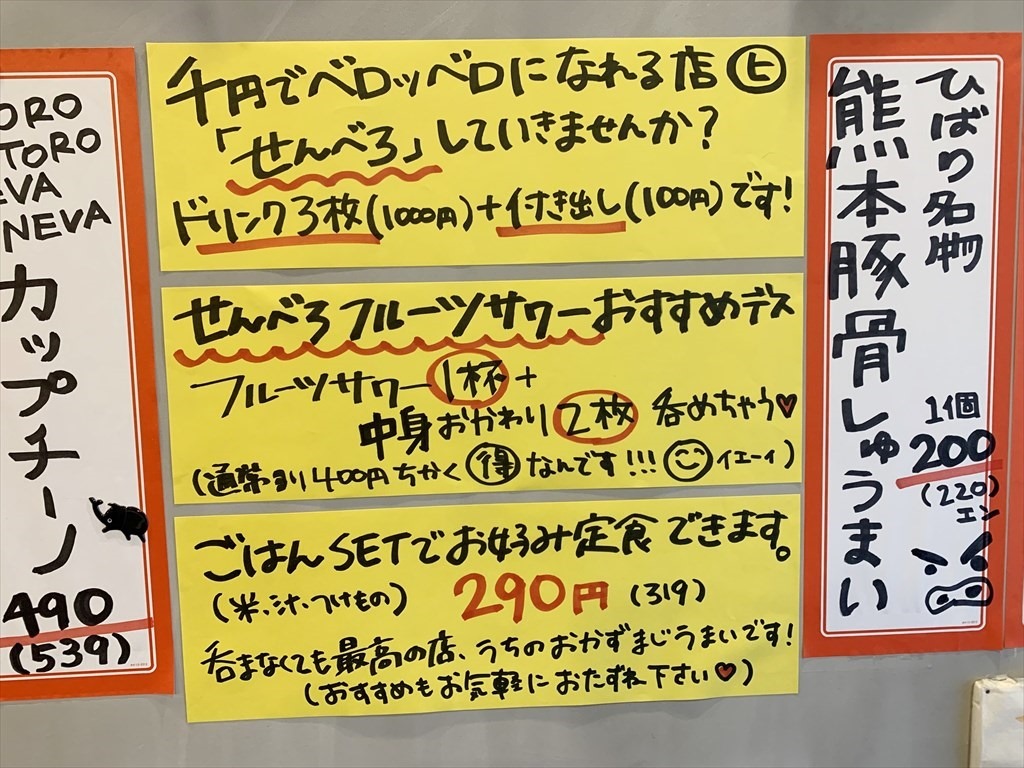 ORO
TORO
EVA
NEVA
カップチーノ
490
(539)
千円でベロッベロになれる店ヒ
「せんべろ」していきませんか?
ドリンク3枚(1000円)+付き出し(100円)です!
せんべろフルーツサワーおすすめデス
フルーツサワー1杯+
中身おかわり2枚 呑めちゃう♥
(通常より400円ちかく得なんです!!!イエーイ)
ごはんSETでお好み定食できます。
(米、汁、つけもの) 290円 (319)
呑まなくても最高の店、うちのおかずまじうまいです!
(おすすめもお気軽におたずね下さい♥)
ひばり名物
熊本豚骨しゅうまい
1個
200
(220)
エン